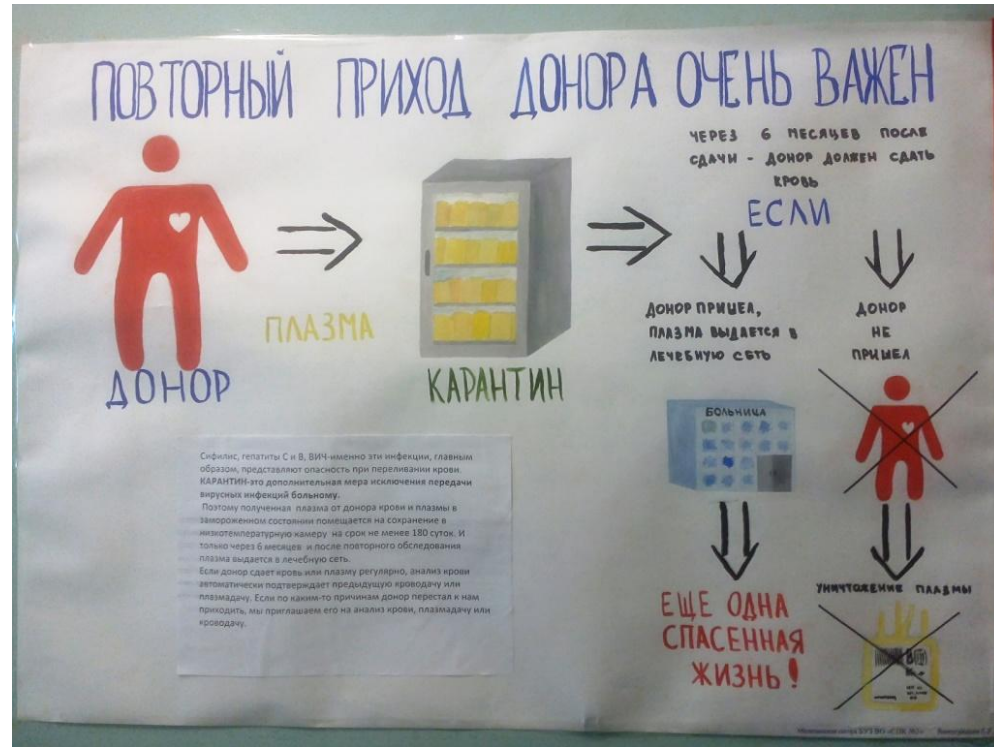 ПОВТОРНЫЙ ПРИХОД ДОНОРА ОЧЕНЬ ВАЖЕН
ЧЕРЕЗ 6 МЕСЯЦЕВ ПОСЛЕ
СДАЧИ - ДОНОР ДОЛЖЕН СДАТЬ
КРОВЬ
ЕСЛИ
ПЛАЗМА
ДОНОР
КАРАНТИН
ДОНОР ПРИШЕЛ,
ПЛАЗМА ВЫДАЕТСЯ В
ЛЕЧЕБНУЮ СЕТЬ
ДОНОР
НЕ
ПРИШЕЛ
БОЛЬНИЦА
Сифилис, гепатиты С и В, ВИЧ-именно эти инфекции, главным
образом, представляют опасность при переливании крови.
КАРАНТИН-это дополнительная мера исключения передачи
вирусных инфекций больному.
Поэтому полученная плазма от донора крови и плазмы в
замороженном состоянии помещается на сохранение в
низкотемпературную камеру на срок не менее 180 суток. И
только через 6 месяцев и после повторного обследования
плазма выдается в лечебную сеть.
Если донор сдает кровь или плазму регулярно, анализ крови
автоматически подтверждает предыдущую кроводачу или
плазмадачу. Если по каким-то причинам донор перестал к нам
приходить, мы приглашаем его на анализ крови, плазмадачу или
кроводачу.
ЕЩЕ ОДНА
СПАСЕННАЯ
ЖИЗНЬ!
УНИЧТОЖЕНИЕ ПЛАЗМЫ